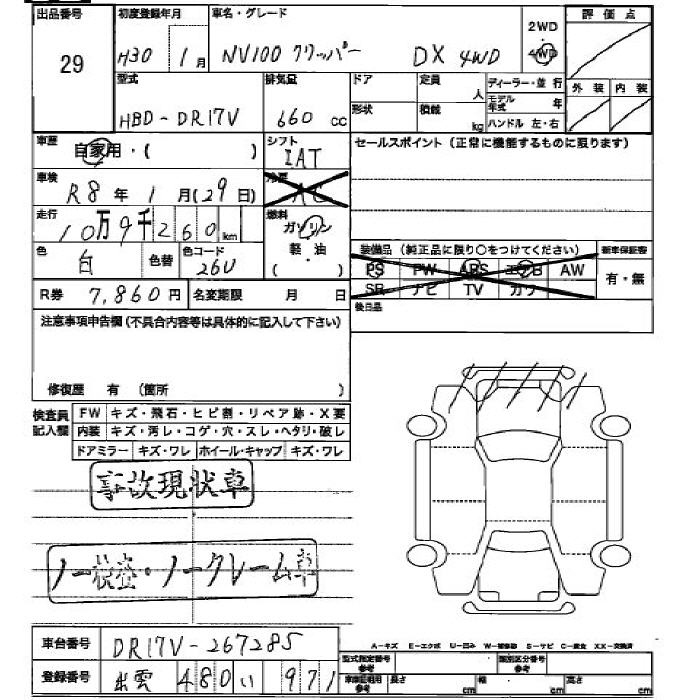 出品番号 初度登録年月 車名・グレード 2WD 評価点
29 H30 1月 NV100 クリッパー DX 4WD 4WD
型式 排気量 ドア 定員 ディーラー・並行 外装 内装
人 モデル年式 年
HBD-DR17V 660 CC 形状 積載 kg ハンドル 左・右
車歴 自家用・( ) シフト IAT セールスポイント (正常に機能するものに限ります)
車検 R8年1月(29日) 冷房 AC
走行 10万9千260km 燃料 ガソリン
軽・油
( ・ )
色 白 色替 色コード 26U 装備品 (純正品に限り○をつけてください) 新車保証書
PS PW ABS エアB AW 有・無
R券 7,860円 名変期限 月 日 SR ナビ TV カワ
後日品
注意事項申告欄(不具合内容等は具体的に記入して下さい)
修復歴 有 (箇所 )
検査員記入欄 FW キズ・飛石・ヒビ割・リペア跡・X要
内装 キズ・汚レ・コゲ・穴・スレ・ヘタリ・破レ
ドアミラー キズ・ワレ ホイール・キャップ キズ・ワレ
事故現状車
ノー検査・ノークレーム車
車台番号 DR17V-267285 A-キズ E-エクボ U-凹ミ W-補修跡 S-サビ C-腐食 XX-交換済
型式指定番号 参考 類別区分番号 参考
登録番号 出雲 480 い 971 車庫証明用 参考 長さ cm 幅 cm 高さ cm